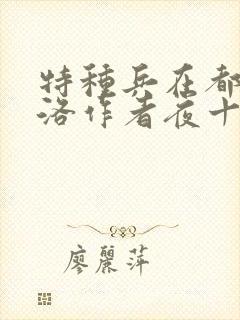 特種兵在都
洛作者夜十
廖麗萍